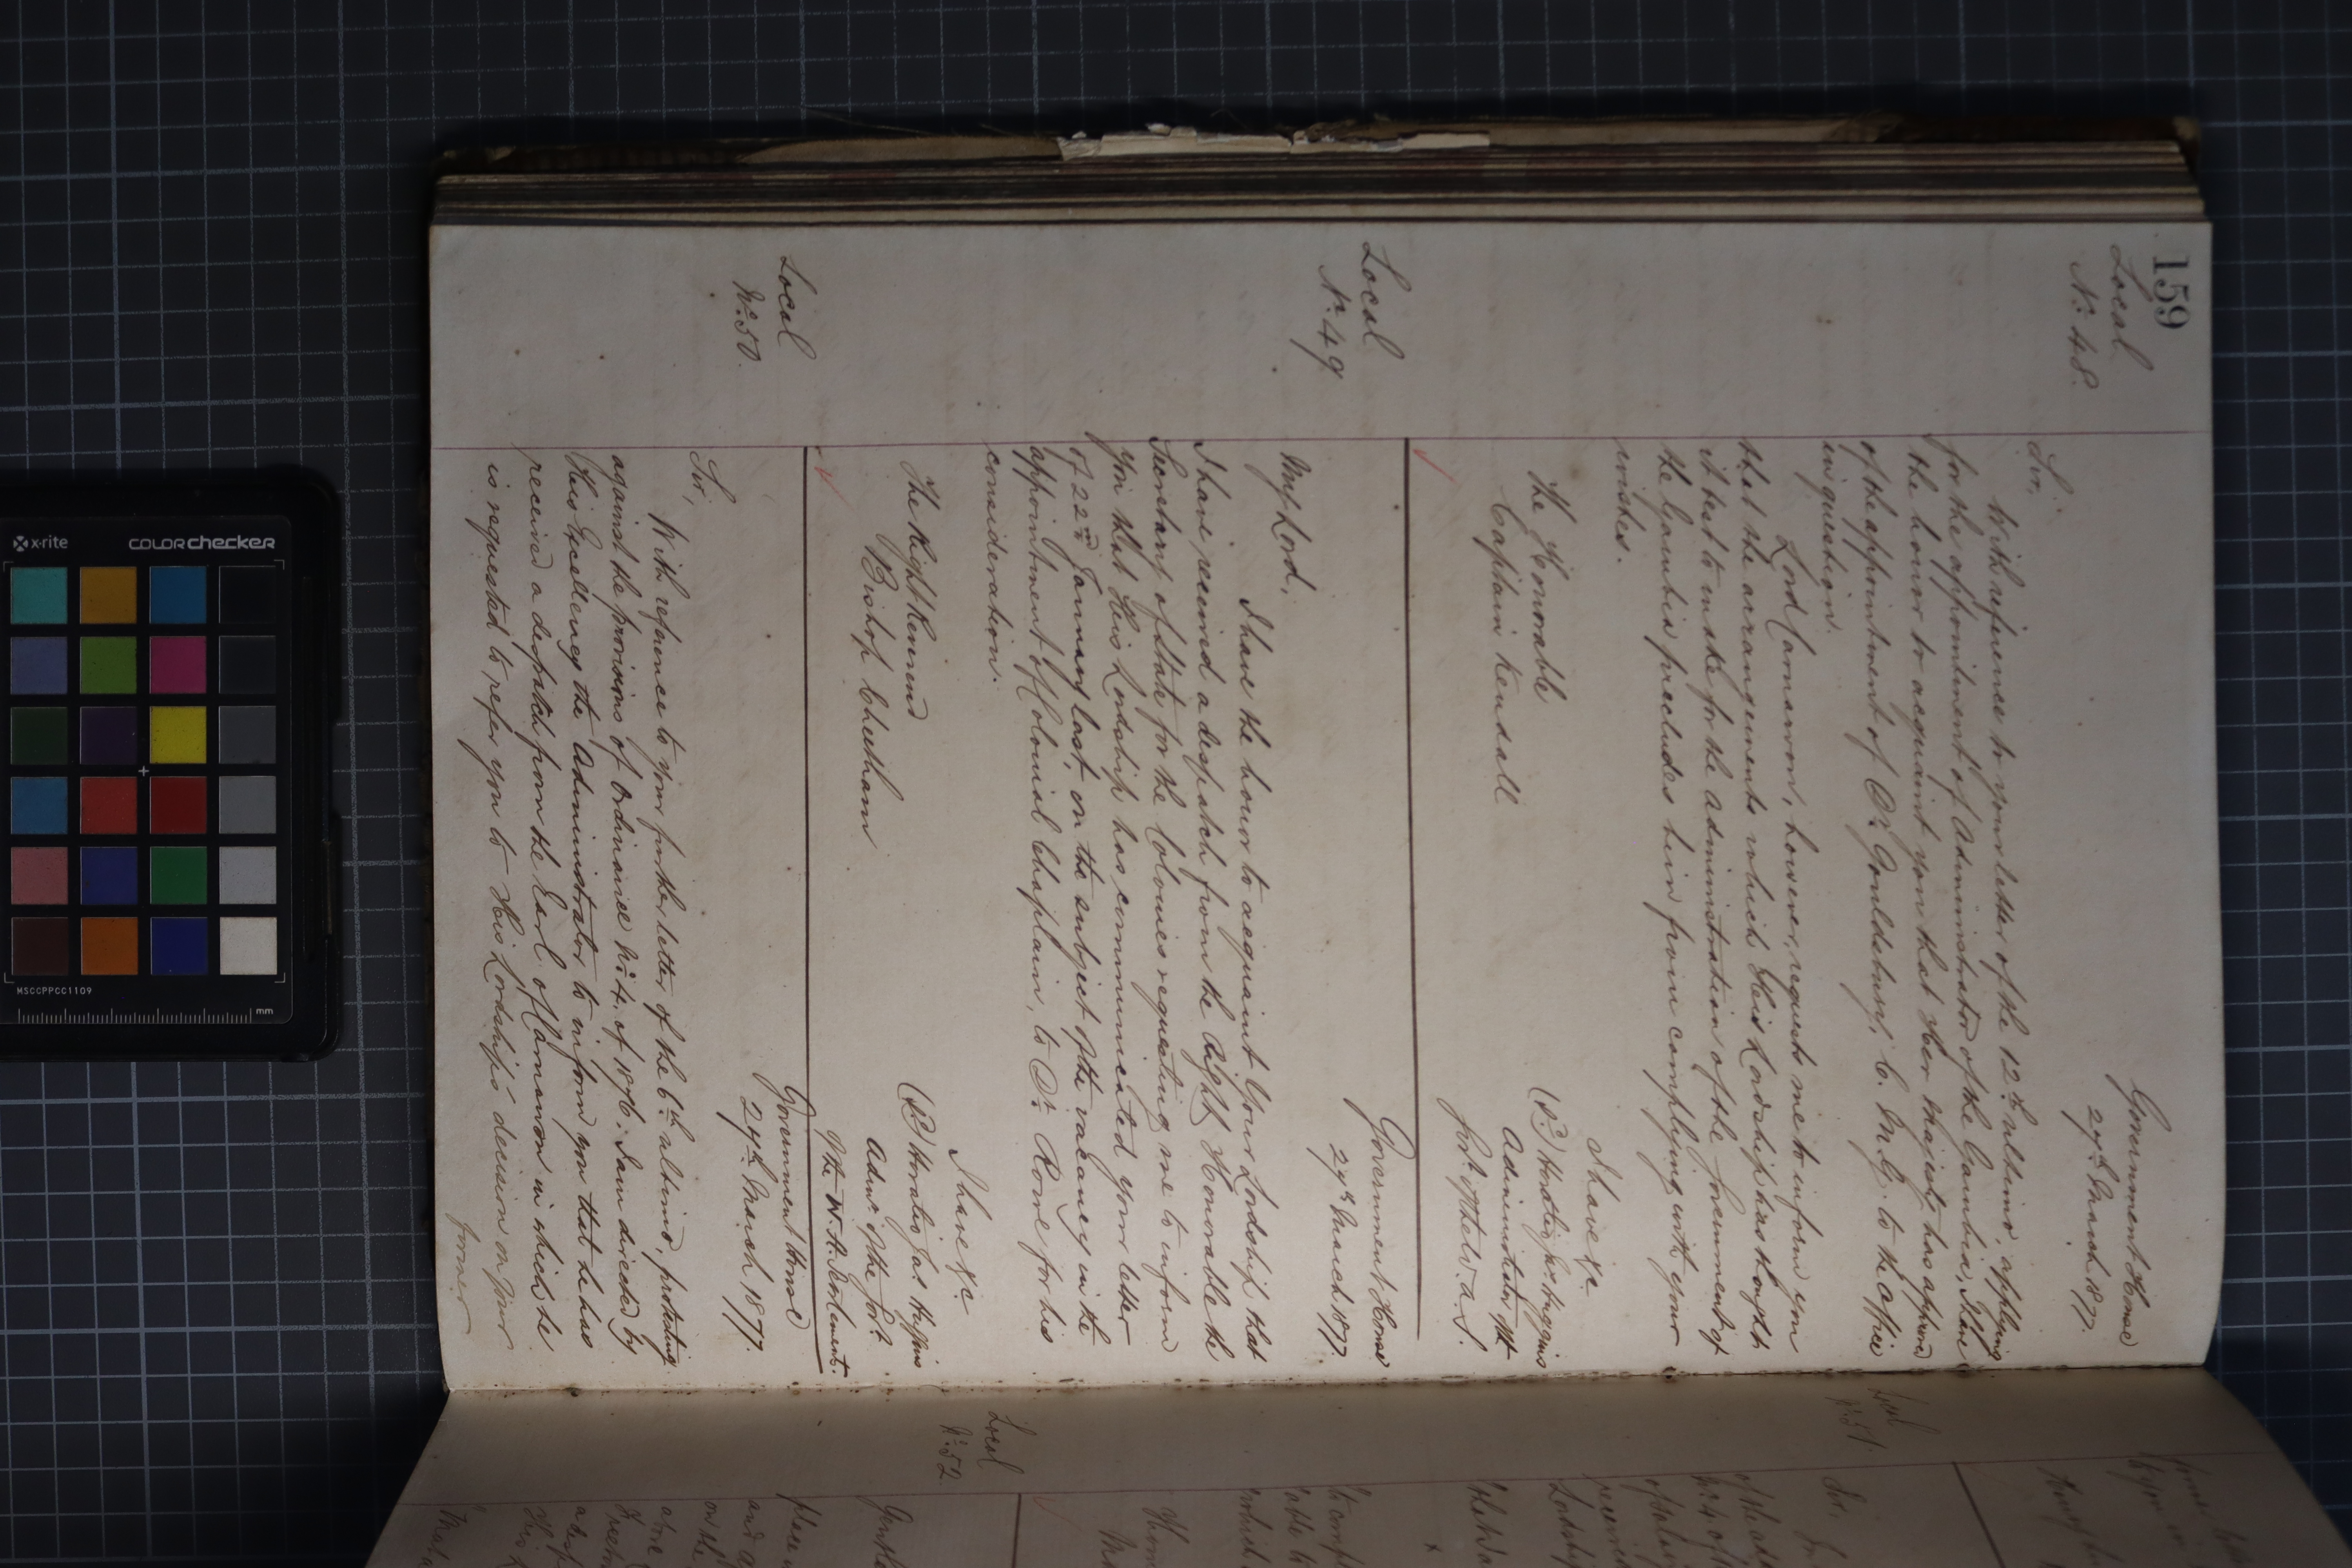 159
Local
No. 48.
Government House
27th March 1877.
Sir,
With reference to your letter of the 12th ultimo, applying
for the appointment of Administrator of the Gambia, I have
the honor to acquaint you that Her Majesty has approved
of the appointment of Dr. Gouldsbury, C.M.G. to the office
in question.
Lord Carnarvon, however, requests me to inform you
that the arrangements which His Lordship has thought
it best to make for the administration of the Government of
the Gambia precludes him from complying with your
wishes.
I have &c.
(Sd) Horatio Jas. Huggins
Administrator of the
Govt. of the W.A.S.
The Honorable
Captain Kendall
Local
No. 49
Government House
27th March 1877.
My Lord,
I have the honor to acquaint Your Lordship that
I have received a despatch from the Right Honorable the
Secretary of State for the Colonies requesting me to inform
you that His Lordship has communicated your letter
of 22nd January last, on the subject of the vacancy in the
appointment of Colonial Chaplain, to Dr. Rowe for his
consideration.
I have &c
(Sd) Horatio Jas. Huggins
Admr. of the Govt.
of the W.A. Settlements.
The Right Reverend
Bishop Cheetham
Local
No. 50.
Government House
27th March 1877.
Sir,
With reference to your further letter of the 6th ultimo, protesting
against the provisions of Ordinance No. 4, of 1876: I am directed by
His Excellency the Administrator to inform you that he has
received a despatch from the Earl of Carnarvon in which he
is requested to refer you to His Lordship's decision on your
former
Local
No. 51.
Sir,
Local
No. 52